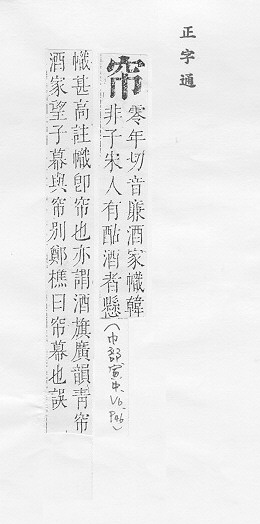 正字通
帘
零年切音廉酒家幟韓
非子宋人有酤酒者懸
幟甚高註幟卽帘也亦謂酒旗廣韻靑帘
酒家望子幕與帘別鄭樵曰帘幕也誤
(巾部 V6 P96)